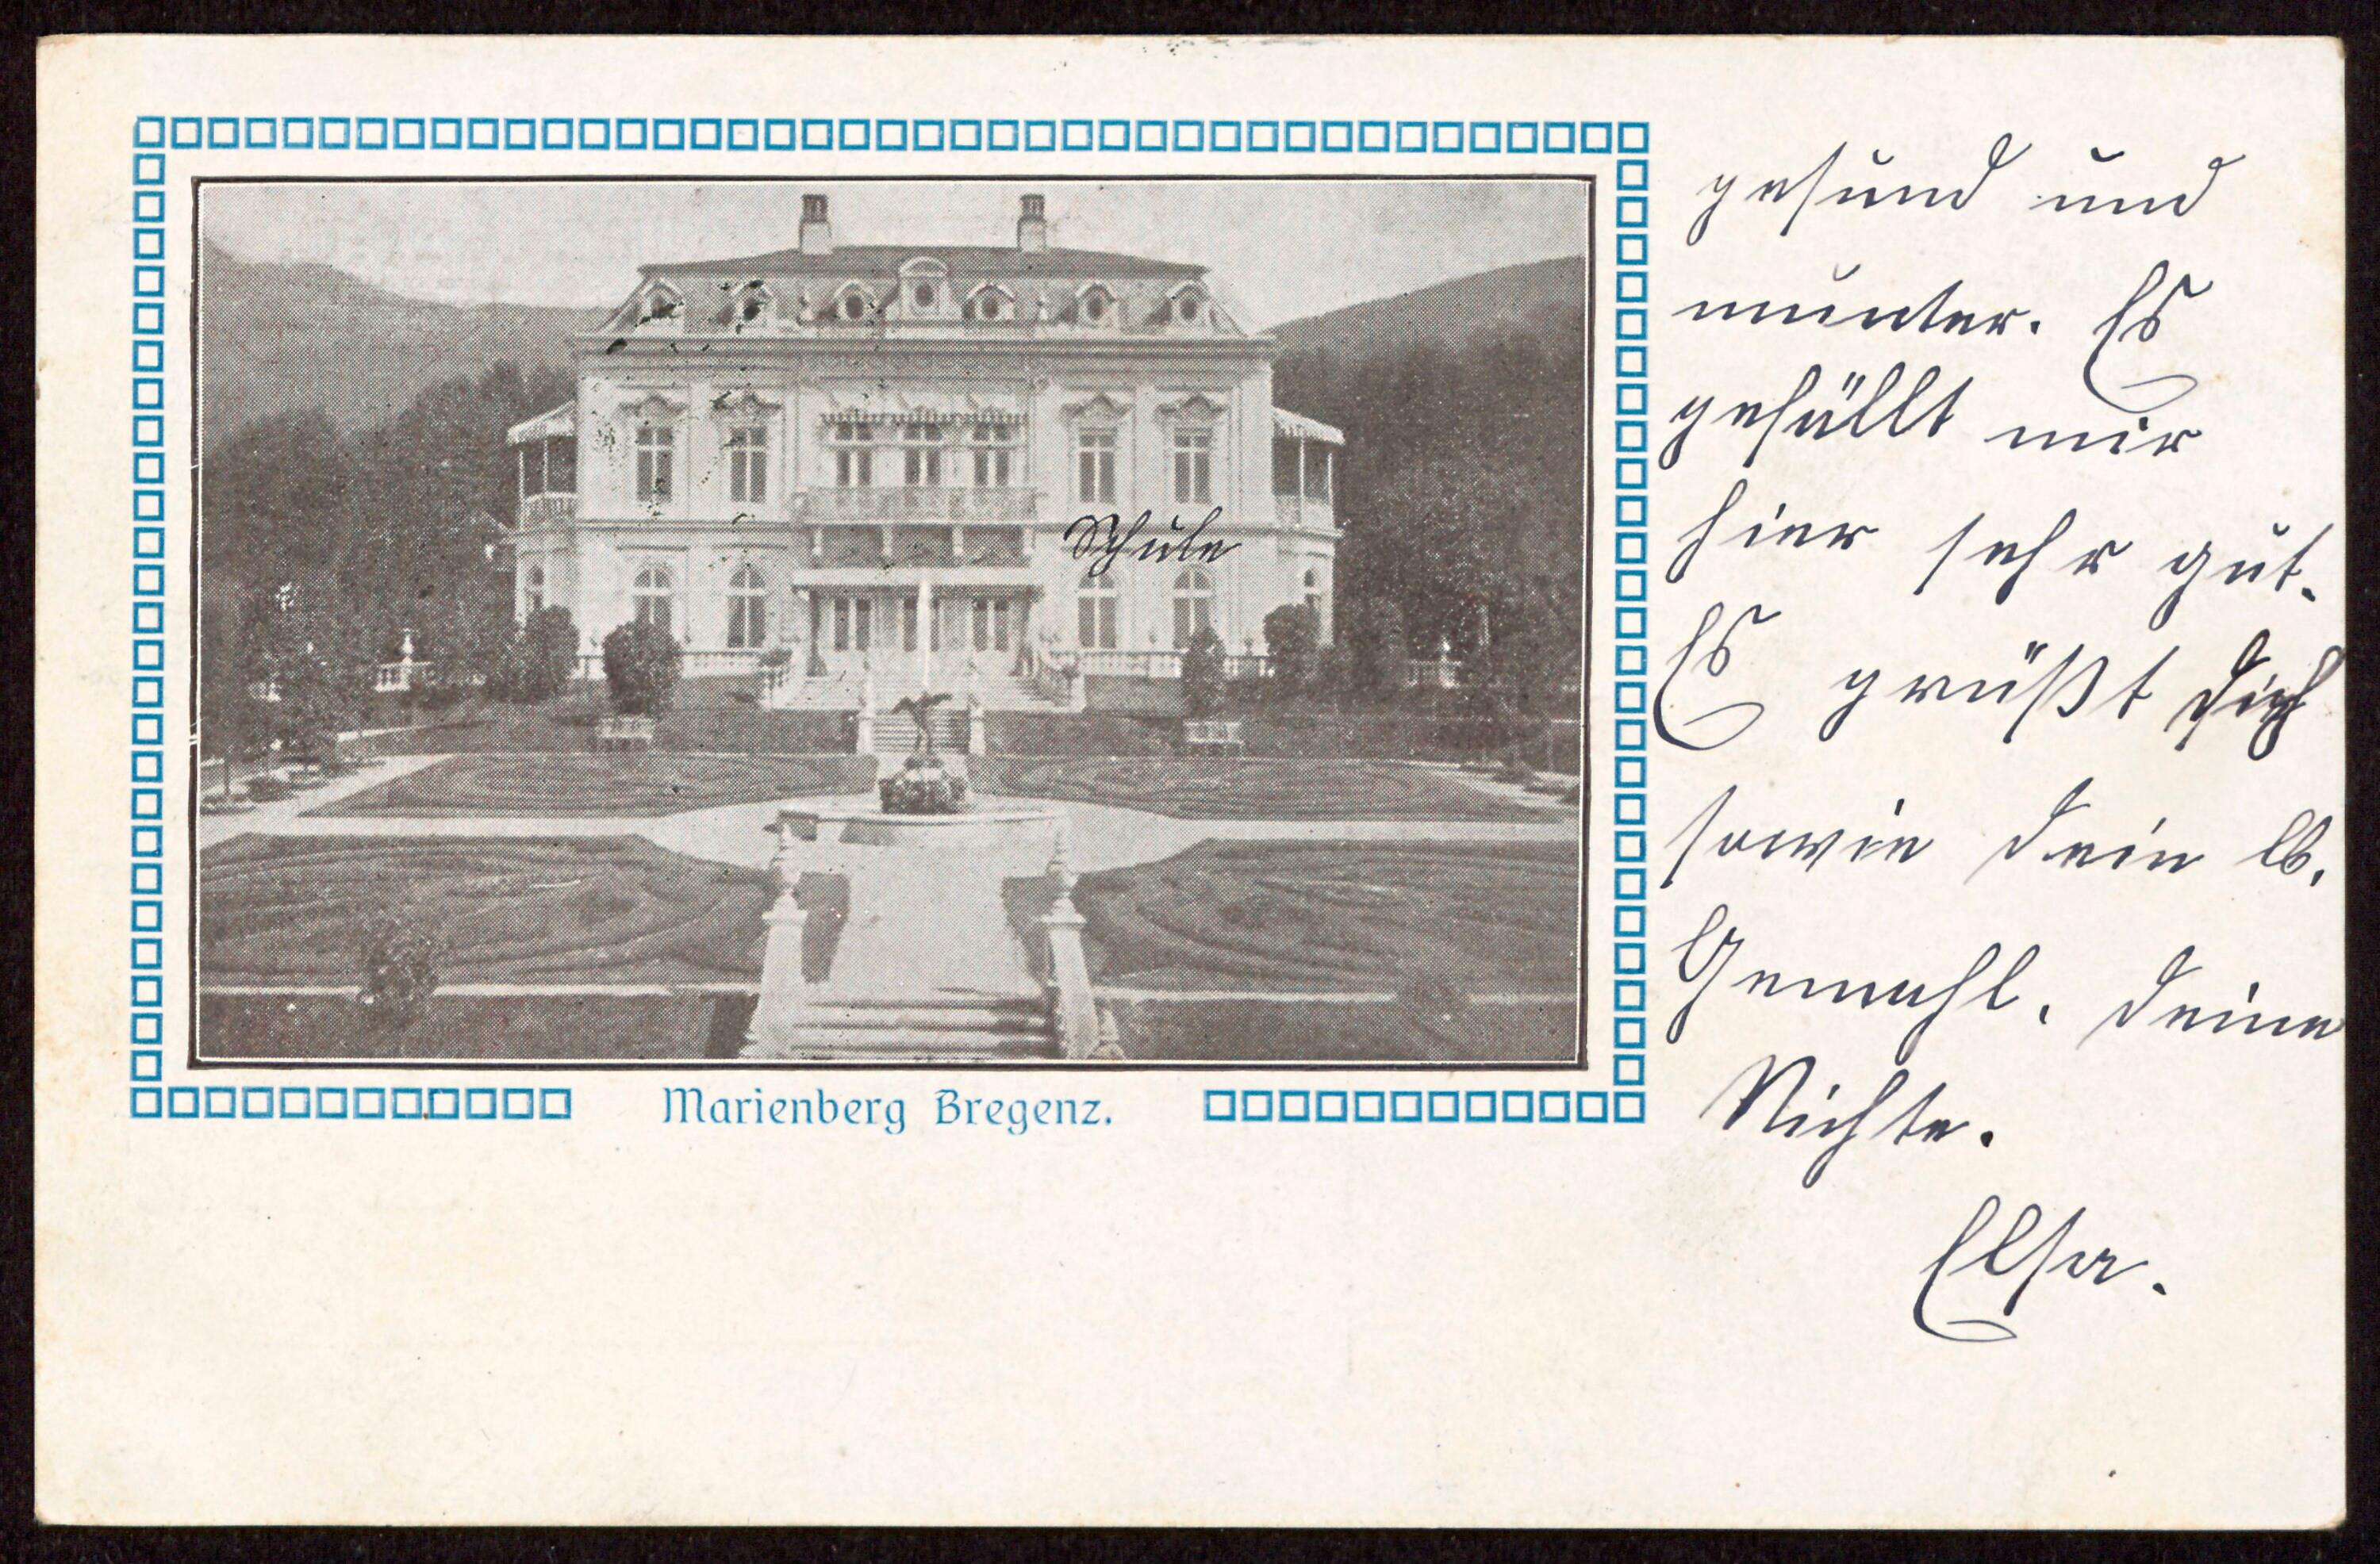 Schule
Marienberg Bregenz.
gesund und
munter. Es
gefällt mir
hier sehr gut.
Es grüßt dich
sowie dein lb.
Gemahl, deine
Nichte.
Elsa.